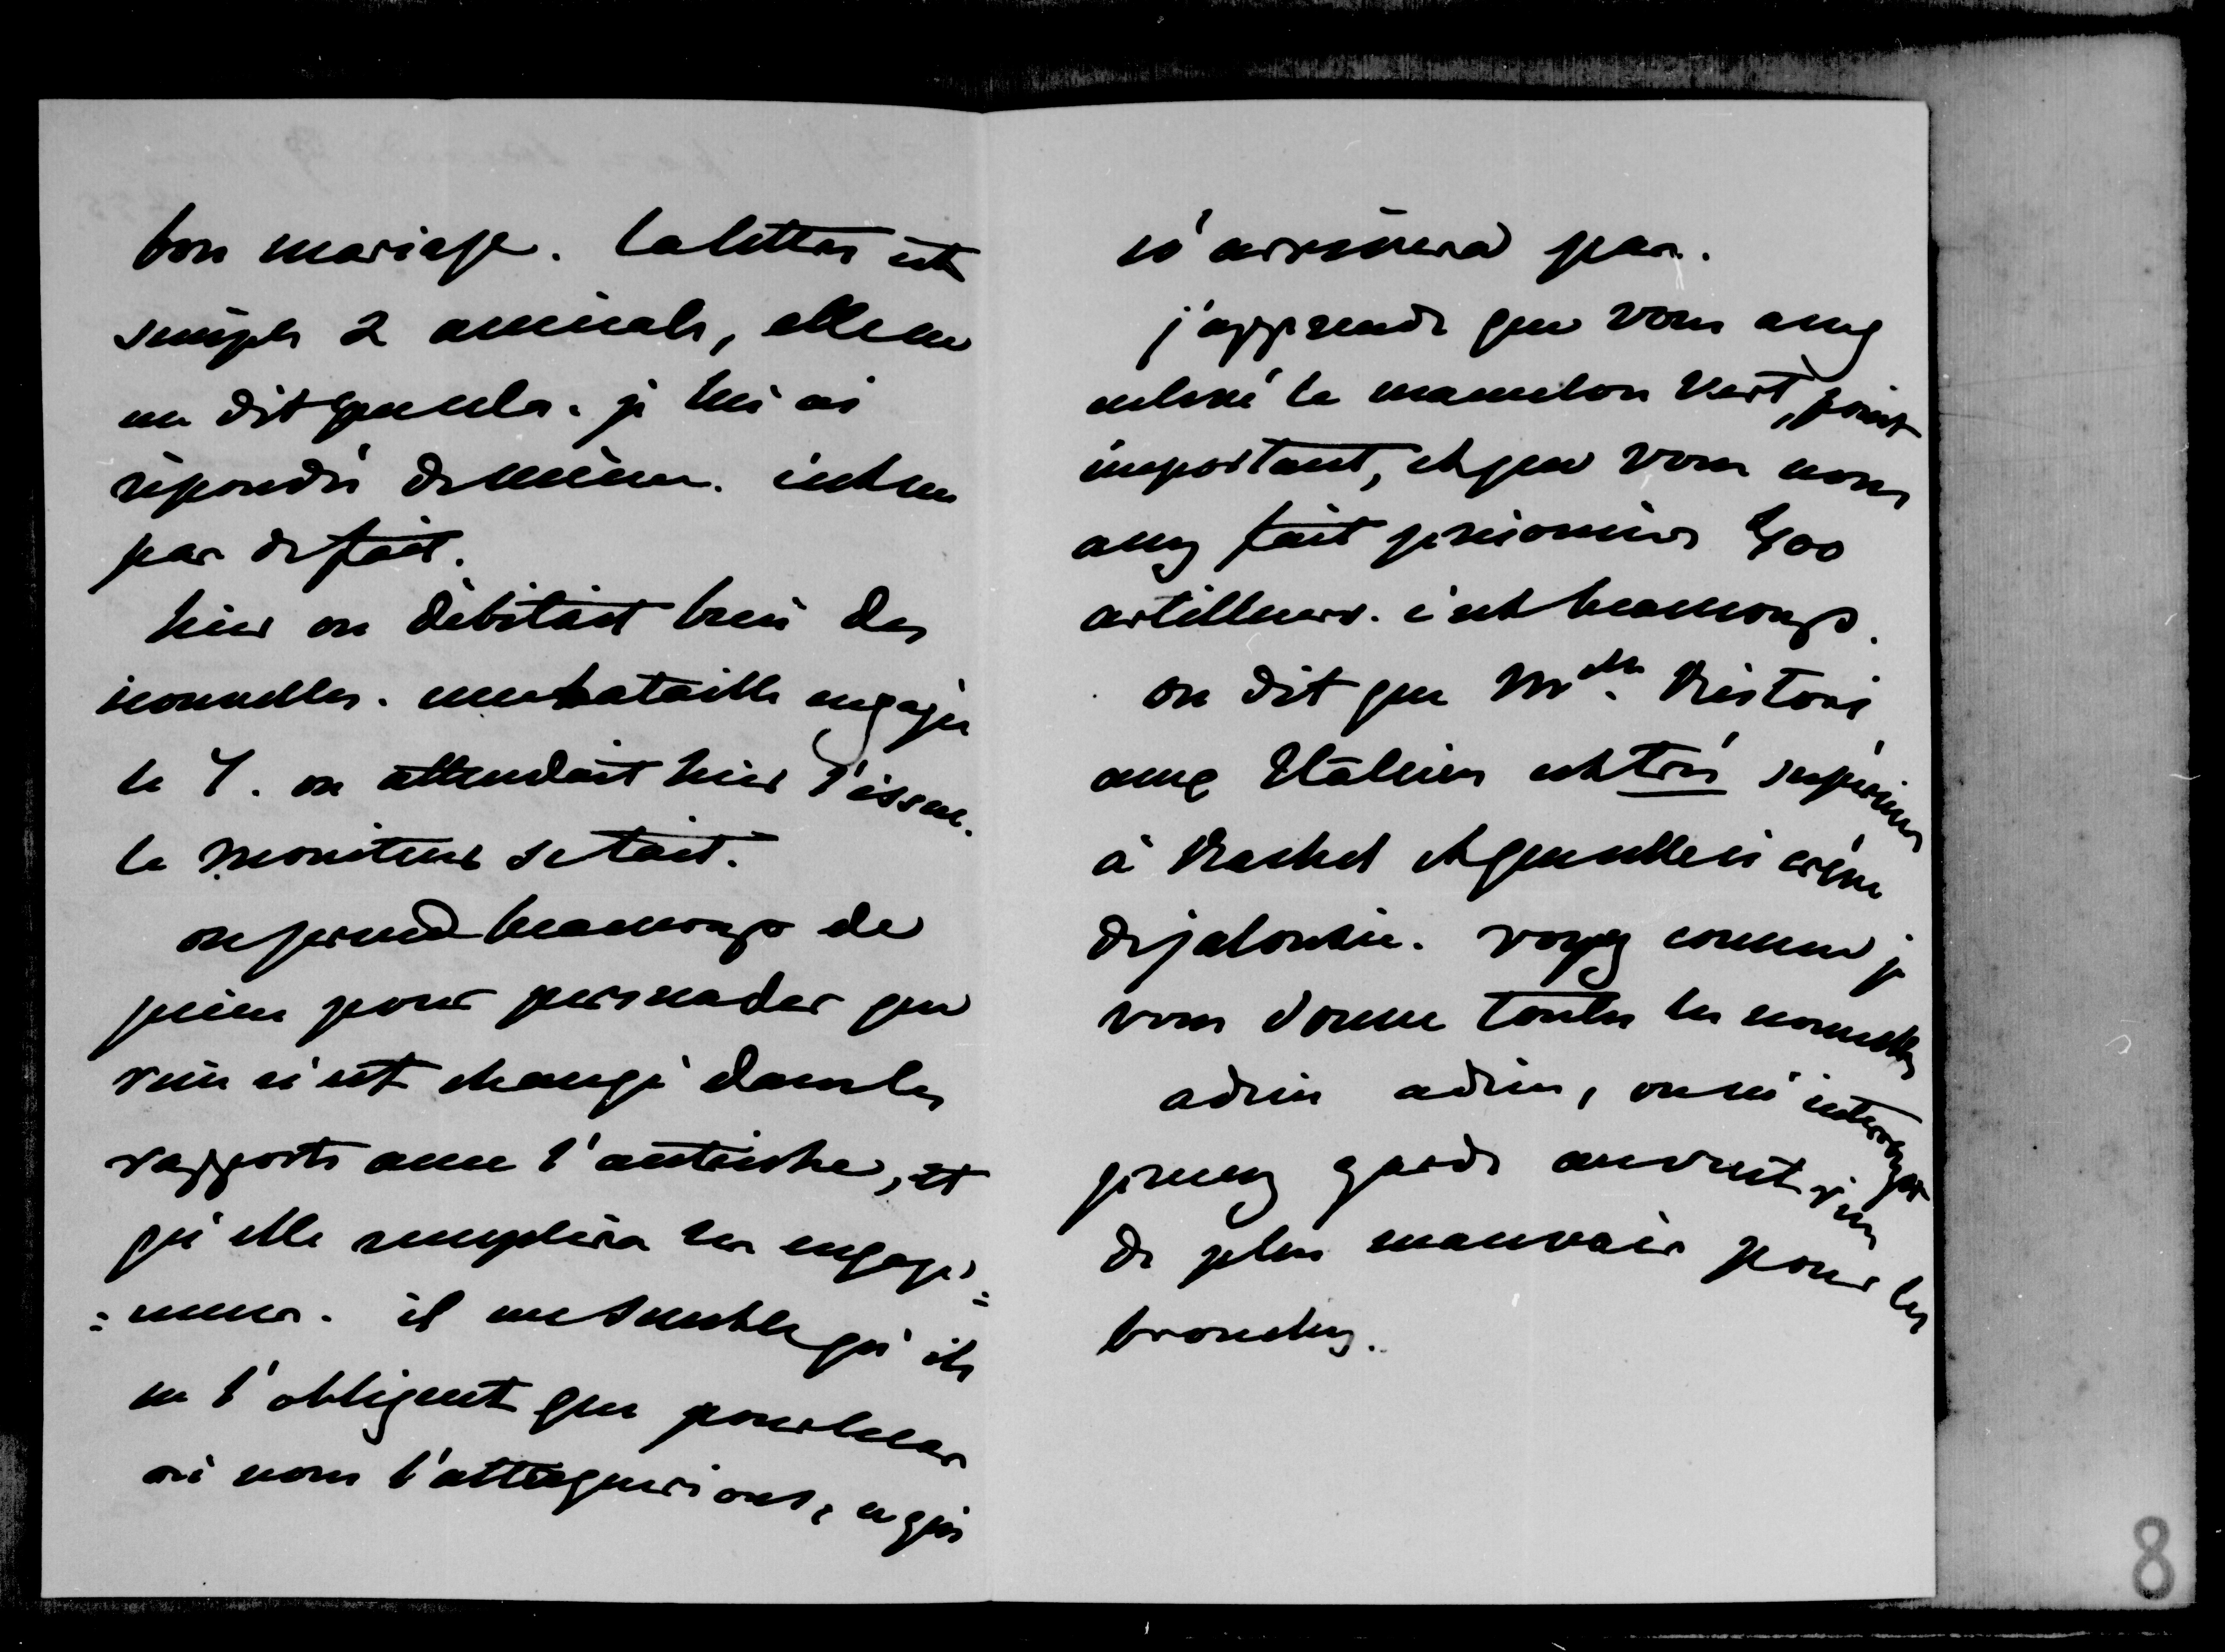 bon mariage. la lettre est
simple & amicale, elle ne
me dit que cela. je lui ai
répondu de même. c'est un
pas de fait.
hier on débitait bien des
nouvelles. une bataille engagée
le 7. on attendait hier l'issue.
le Moniteur se tait.
on prend beaucoup de
peine pour persuader que
rien n'est changé dans les
rapports avec l'autriche, et
qu'elle remplira ses engage=
=mens. il me semble qu'ils
ne l'obligent que pour le cas
où nous l'attaquerions, ce qui
n'arrivera pas.
j'apprends que vous avez
enlevé le mamelon Vert, point
important, et que vous nous
avez fait prisonniers 400
artilleurs. c'est beaucoup.
on dit que Mde Ristori
aux Italiens est très supérieure
à Rachel et que celle ci crève
de jalousie. voyez comme je
vous donne toutes les nouvelles
adieu adieu,
prenez garde au vent rien
de plus mauvais pour les
bronches.
8